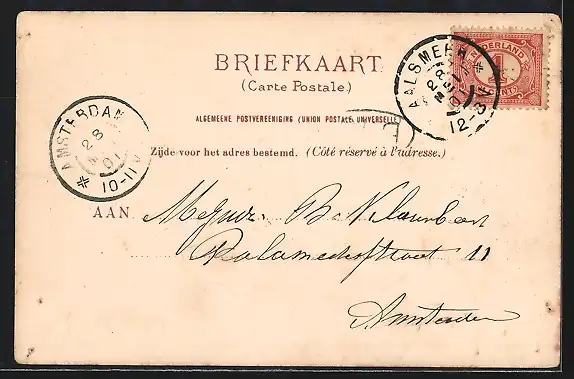 BRIEFKAART
(Carte Postale.)
ALGEMEENE POSTVEREENIGING (UNION POSTALE UNIVERSELLE)
Zijde voor het adres bestemd. (Côté réservé à l'adresse.)
AAN
B.
11
Amsterdam
AALSMEER
28
01
12-3V
NEDERLAND
1
CENT
AMSTERDAM
28
01
10-11V